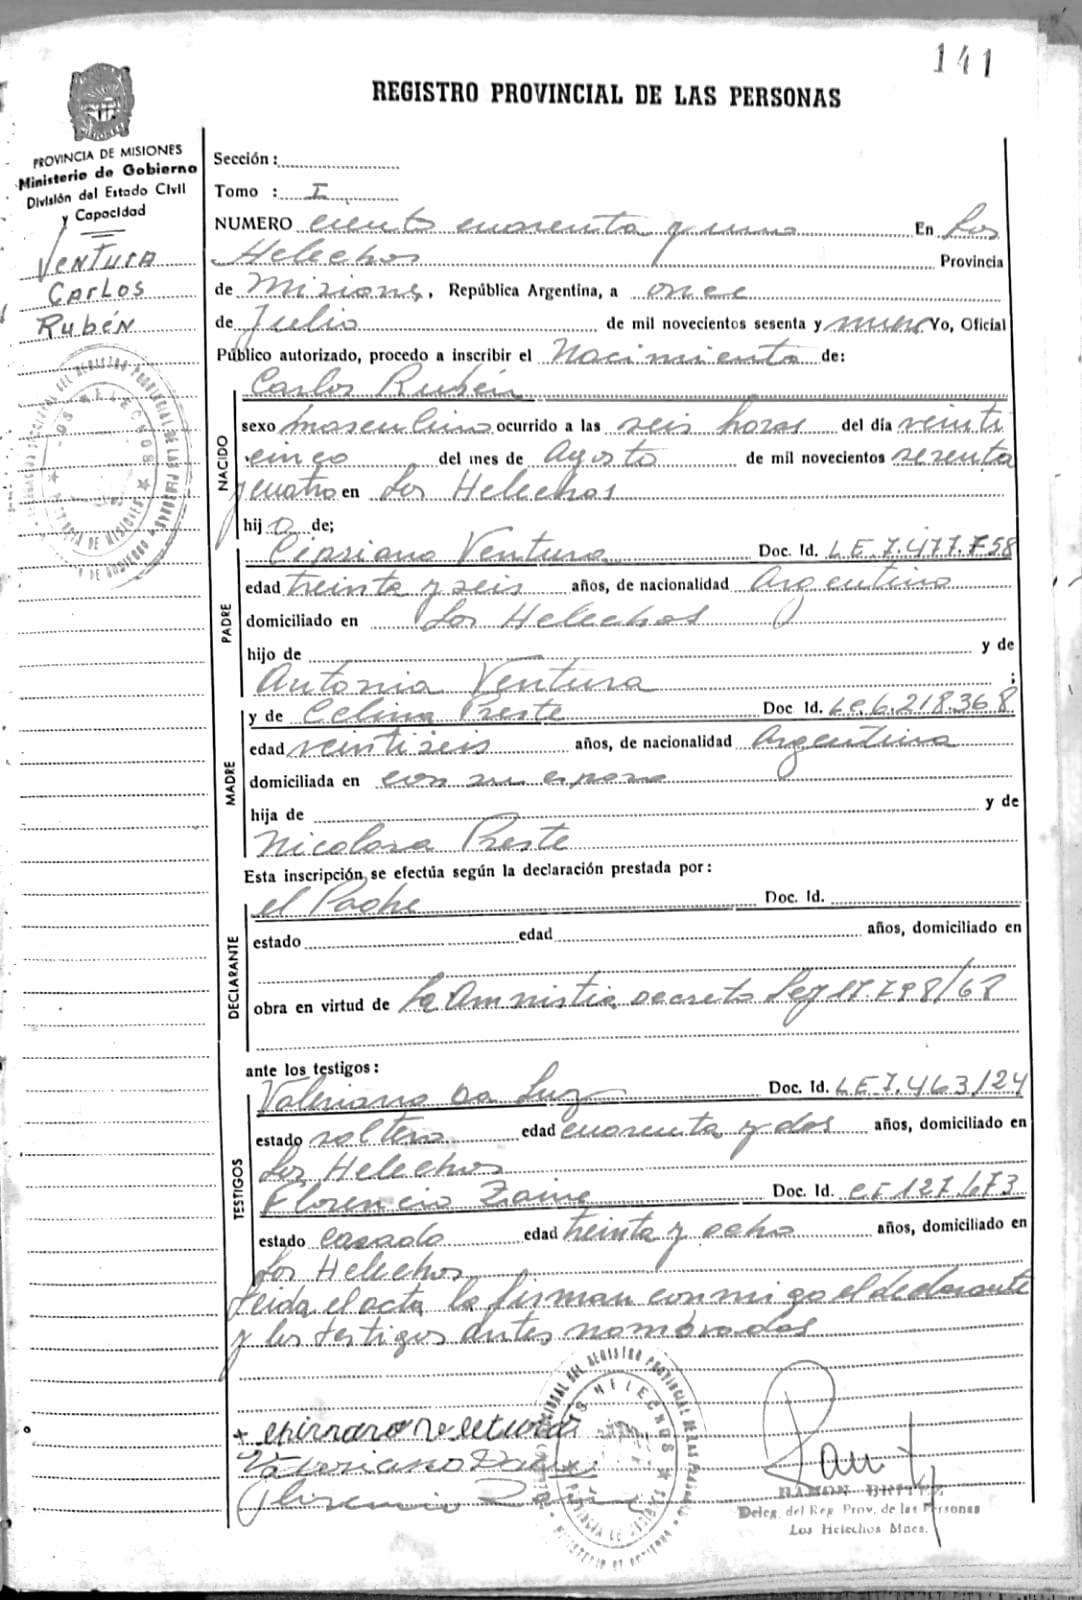 141
REGISTRO PROVINCIAL DE LAS PERSONAS
PROVINCIA DE MISIONES
Ministerio de Gobierno
División del Estado Civil
y Capacidad
Ventura
Carlos
Rubén
Sección:
Tomo : I
NUMERO ciento cuarenta y uno En Los
Helechos Provincia
de Misiones, República Argentina, a once
de Julio de mil novecientos sesenta y nueve Yo, Oficial
Público autorizado, procedo a inscribir el Nacimiento de:
Carlos Rubén
NACIDO
sexo masculino ocurrido a las seis horas del día veinti
cinco del mes de Agosto de mil novecientos sesenta
y cuatro en Los Helechos
hij o de;
PADRE
Cipriano Ventura Doc. Id. L.E.7.477.758
edad treinta y seis años, de nacionalidad Argentina
domiciliado en Los Helechos
hijo de y de
Antonia Ventura ;
MADRE
y de Celina Preste Doc. Id. L.C.6.218.368
edad veintiseis años, de nacionalidad Argentina
domiciliada en con su esposo
hija de y de
Nicolasa Preste
Esta inscripción se efectúa según la declaración prestada por:
DECLARANTE
el Padre Doc. Id.
estado edad años, domiciliado en
obra en virtud de La Amnistia decreto Ley 17.798/68
ante los testigos:
TESTIGOS
Valeriano Da Luz Doc. Id. L.E.7.463124
estado soltero edad cuarenta y dos años, domiciliado en
Los Helechos
Florencio Zaine Doc. Id. C.I 127.673
estado casado edad treinta y ocho años, domiciliado en
Los Helechos
Leida el acta la firman conmigo el declarante
y los testigos antes nombrados
Valeriano Da Luz
Florencio
RAMON
Deleg. del Reg. Prov. de las Personas
Los Helechos Mnes.